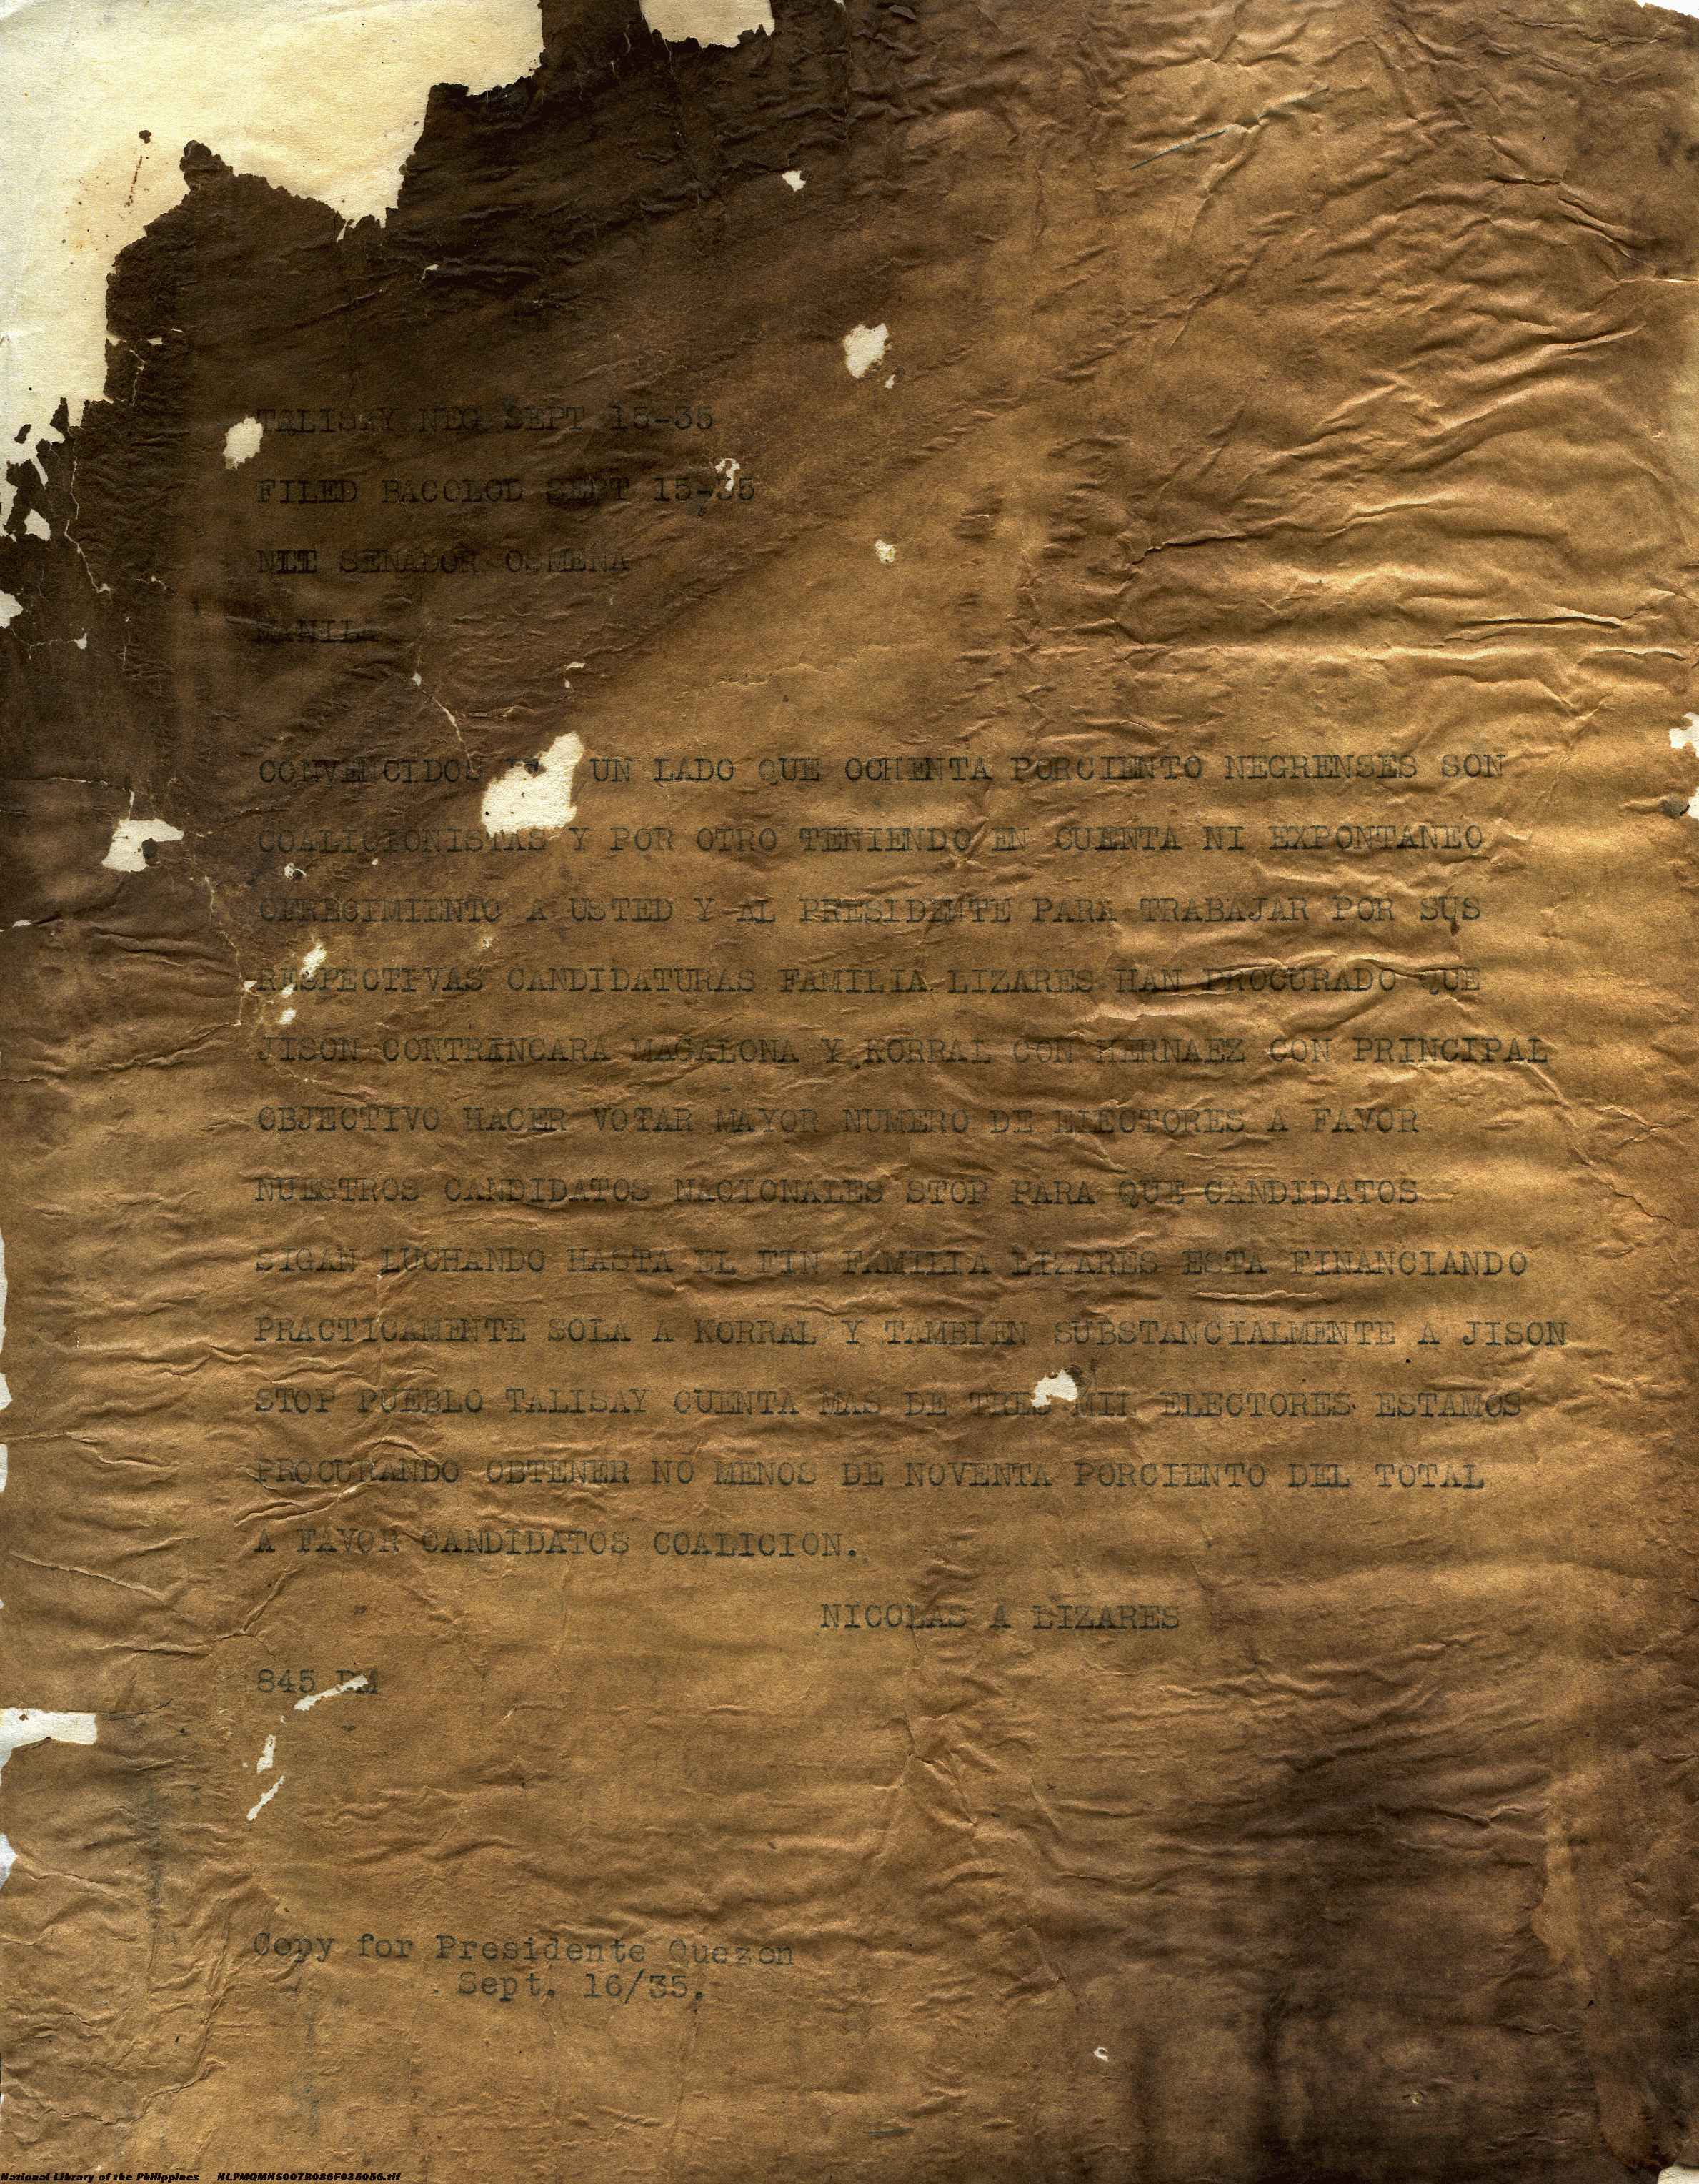 TALISAY NEG SEPT 15-35
FILED BACOLOD SEPT 15-35
NLT SENADOR OSMENA
MANILA
CONVENCIDOS UN LADO QUE OCHENTA PORCIENTO NEGRENSES SON
COALICIONISTAS Y POR OTRO TENIENDO EN CUENTA NI EXPONTANEO
OFRECIMIENTO A USTED Y AL PRESIDENTE PARA TRABAJAR POR SUS
RESPECTIVAS CANDIDATURAS FAMILIA LIZARES HAN PROCURADO QUE
JISON CONTRINCARA MAGALONA Y KORRAL CON HERNAEZ CON PRINCIPAL
OBJECTIVO HACER VOTAR MAYOR NUMERO DE ELECTORES A FAVOR
NUESTROS CANDIDATOS NACIONALES STOP PARA QUE CANDIDATOS
SIGAN LUCHANDO HASTA EL FIN FAMILIA LIZARES ESTA FINANCIANDO
PRACTICAMENTE SOLA A KORRAL Y TAMBIEN SUBSTANCIALMENTE A JISON
STOP PUEBLO TALISAY CUENTA MAS DE TRES MIL ELECTORES ESTAMOS
PROCURANDO OBTENER NO MENOS DE NOVENTA PORCIENTO DEL TOTAL
A FAVOR CANDIDATOS COALICION.
NICOLAS A LIZARES
845 PM
Copy for Presidente Quezon
Sept. 16/35.
National Library of the Philippines NLPMQMNS007B086F035056.tif